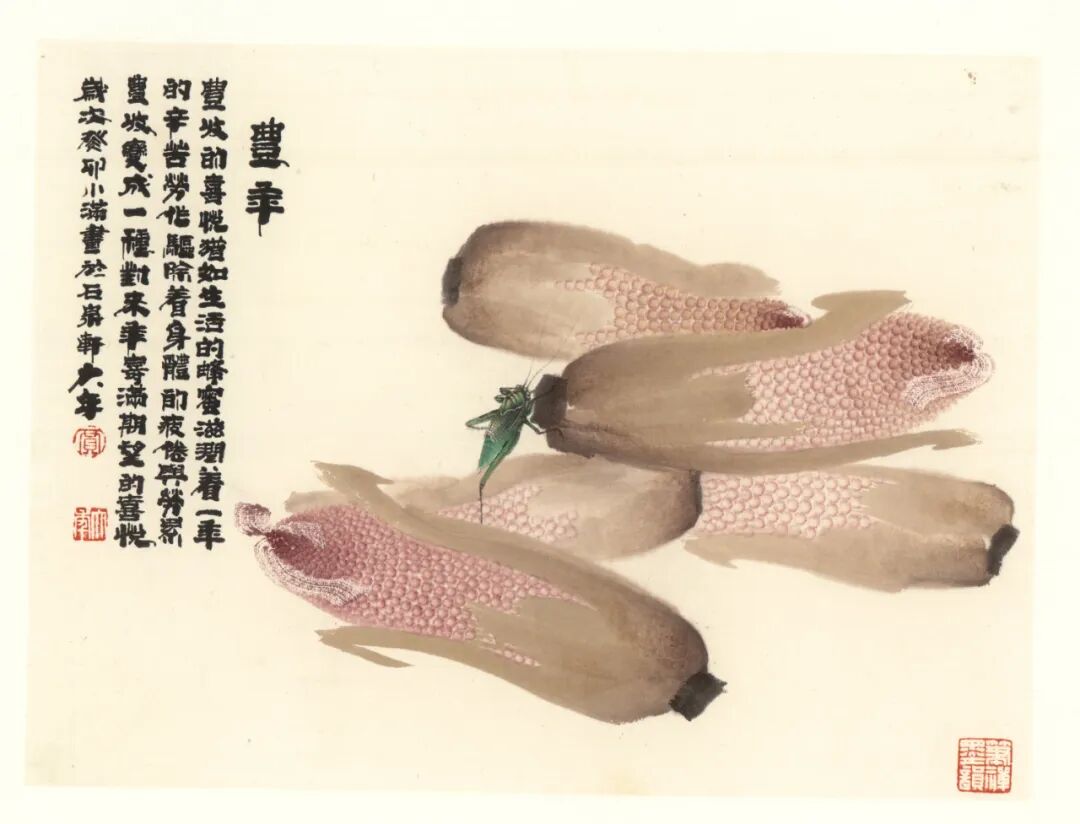 豐年
豐收的喜悅猶如生活的蜂蜜滋潤着一年
的辛苦勞作驅除着身體的疲倦與勞累
豐收變成一種對來年寄滿期望的喜悅
歲次癸卯小滿畫於石軒大年
大年
萬祥墨韻